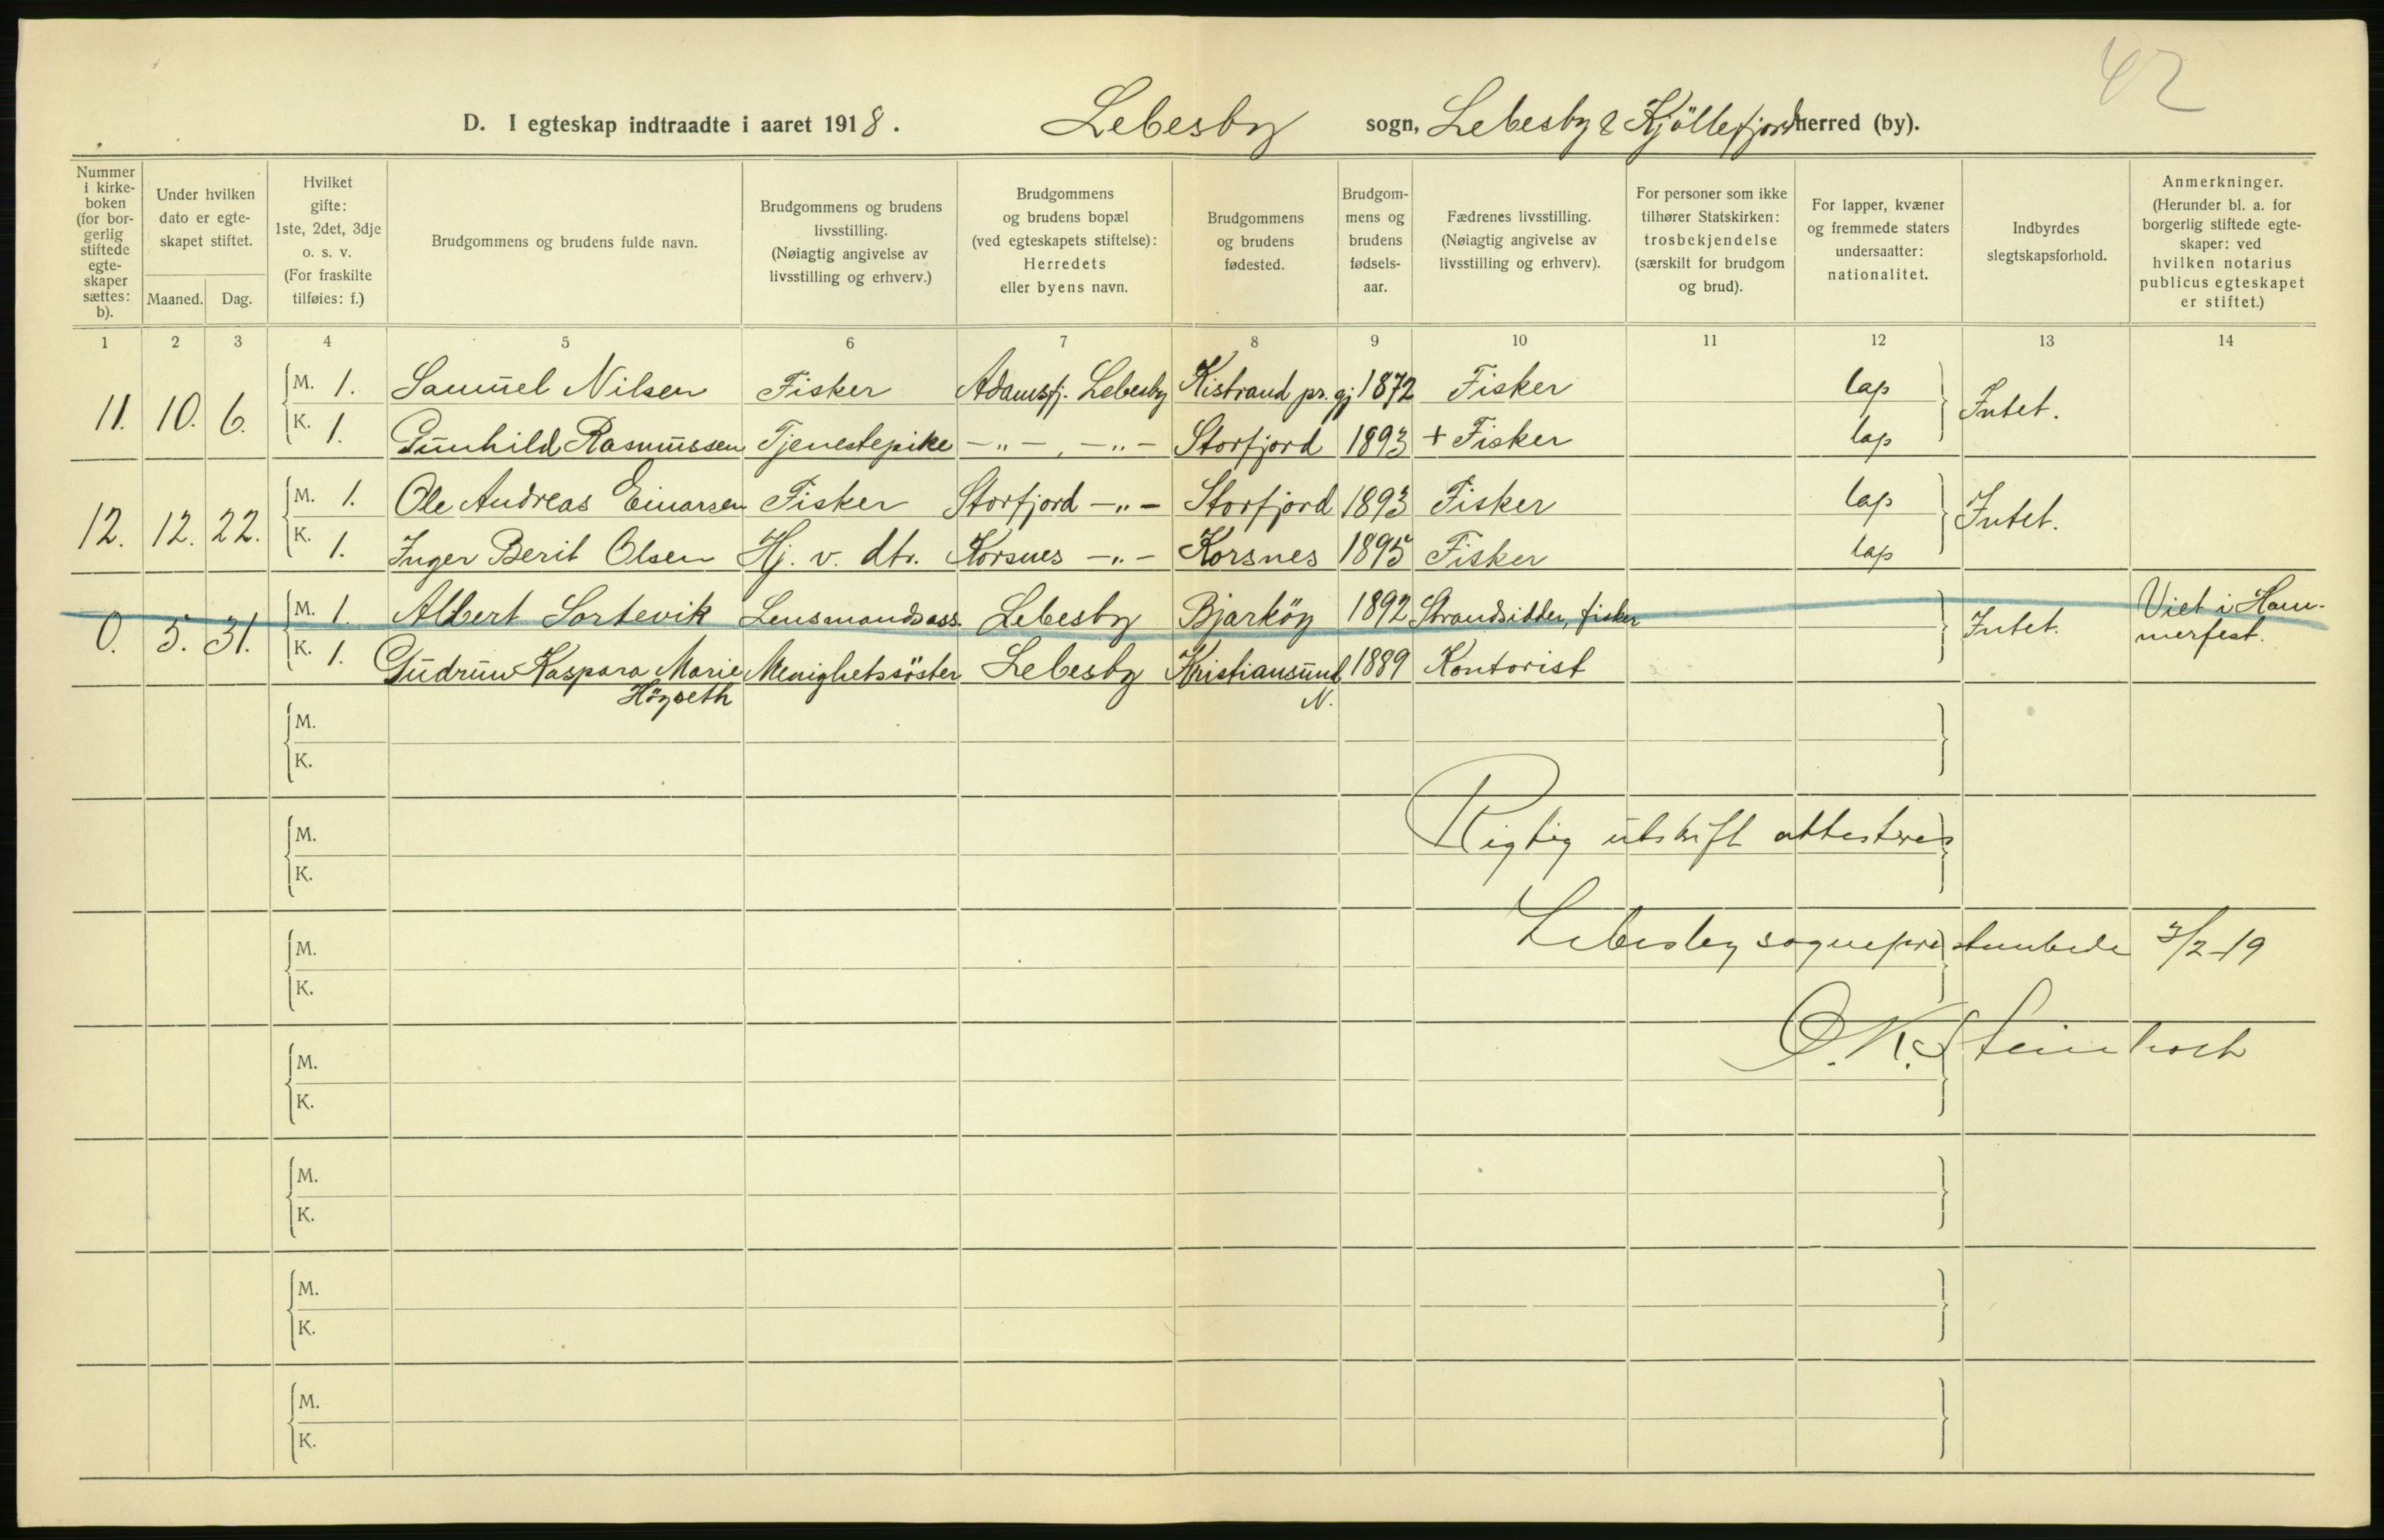 42
D. I egteskap indtraadte i aaret 1918. Lebesby sogn, Lebesby & Kjöllefjord herred (by).
Nummer i kirke-boken (for bor-gerlig stiftede egte-skaper sættes: b).
Under hvilken dato er egte-skapet stiftet.
Maaned. Dag.
Hvilket gifte: 1ste, 2det, 3dje o. s. v. (For fraskilte tilføies: f.)
Brudgommens og brudens fulde navn.
Brudgommens og brudens livsstilling. (Nøiagtig angivelse av livsstilling og erhverv.)
Brudgommens og brudens bopæl (ved egteskapets stiftelse): Herredets eller byens navn.
Brudgommens og brudens fødested.
Brudgom-mens og brudens fødsels-aar.
Fædrenes livsstilling. (Nøiagtig angivelse av livsstilling og erhverv).
For personer som ikke tilhører Statskirken: trosbekjendelse (særskilt for brudgom og brud).
For lapper, kvæner og fremmede staters undersaatter: nationalitet.
Indbyrdes slegtskapsforhold.
Anmerkninger. (Herunder bl. a. for borgerlig stiftede egte-skaper: ved hvilken notarius publicus egteskapet er stiftet.)
1 2 3 4 5 6 7 8 9 10 11 12 13 14
11. 10. 6. M. 1. Samuel Nilsen Fisker Adamsfj. Lebesby Kistrand pr.gj 1872 Fisker lap Intet.
K. 1. Gunhild Rasmussen Tjenestepike —"— , —"— Storfjord 1893 + Fisker lap
12. 12. 22. M. 1. Ole Andreas Einarsen Fisker Storfjord —"— Storfjord 1893 Fisker lap Intet.
K. 1. Inger Berit Olsen Hj. v. dtr. Korsnes —"— Korsnes 1895 Fisker lap
0. 5. 31. M. 1. Albert Sortevik Lensmandsass. Lebesby Bjarköy 1892 Strandsidder, fisker Intet. Viet i Ham-
merfest.
K. 1. Gudrun Kaspara Marie Menighetssöster Lebesby Kristiansund 1889 Kontorist
Höyseth N.
M.
K.
M. Rigtig utskrift attesteres
K.
M. Lebesby sogneprestembede 3/2-19
K.
M. O. K. Steinholt
K.
M.
K.
M.
K.
M.
K.